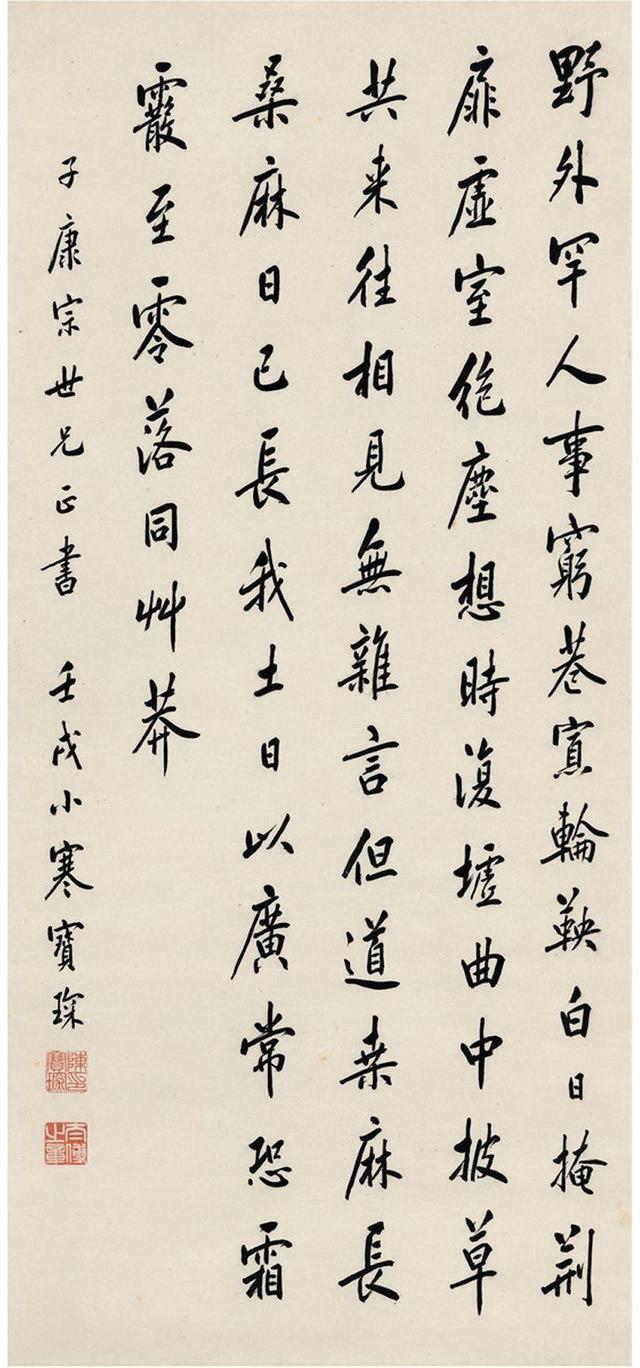 野外罕人事窮巷寡輪鞅白日掩荊
扉虛室絕塵想時復墟曲中披草
共来往相見無雜言但道桒麻長
桑麻日已長我土日以廣常恐霜
霰至零落同艸莽
子康宗世兄正書 壬戌小寒寶琛
陳印寶琛
太傅之章